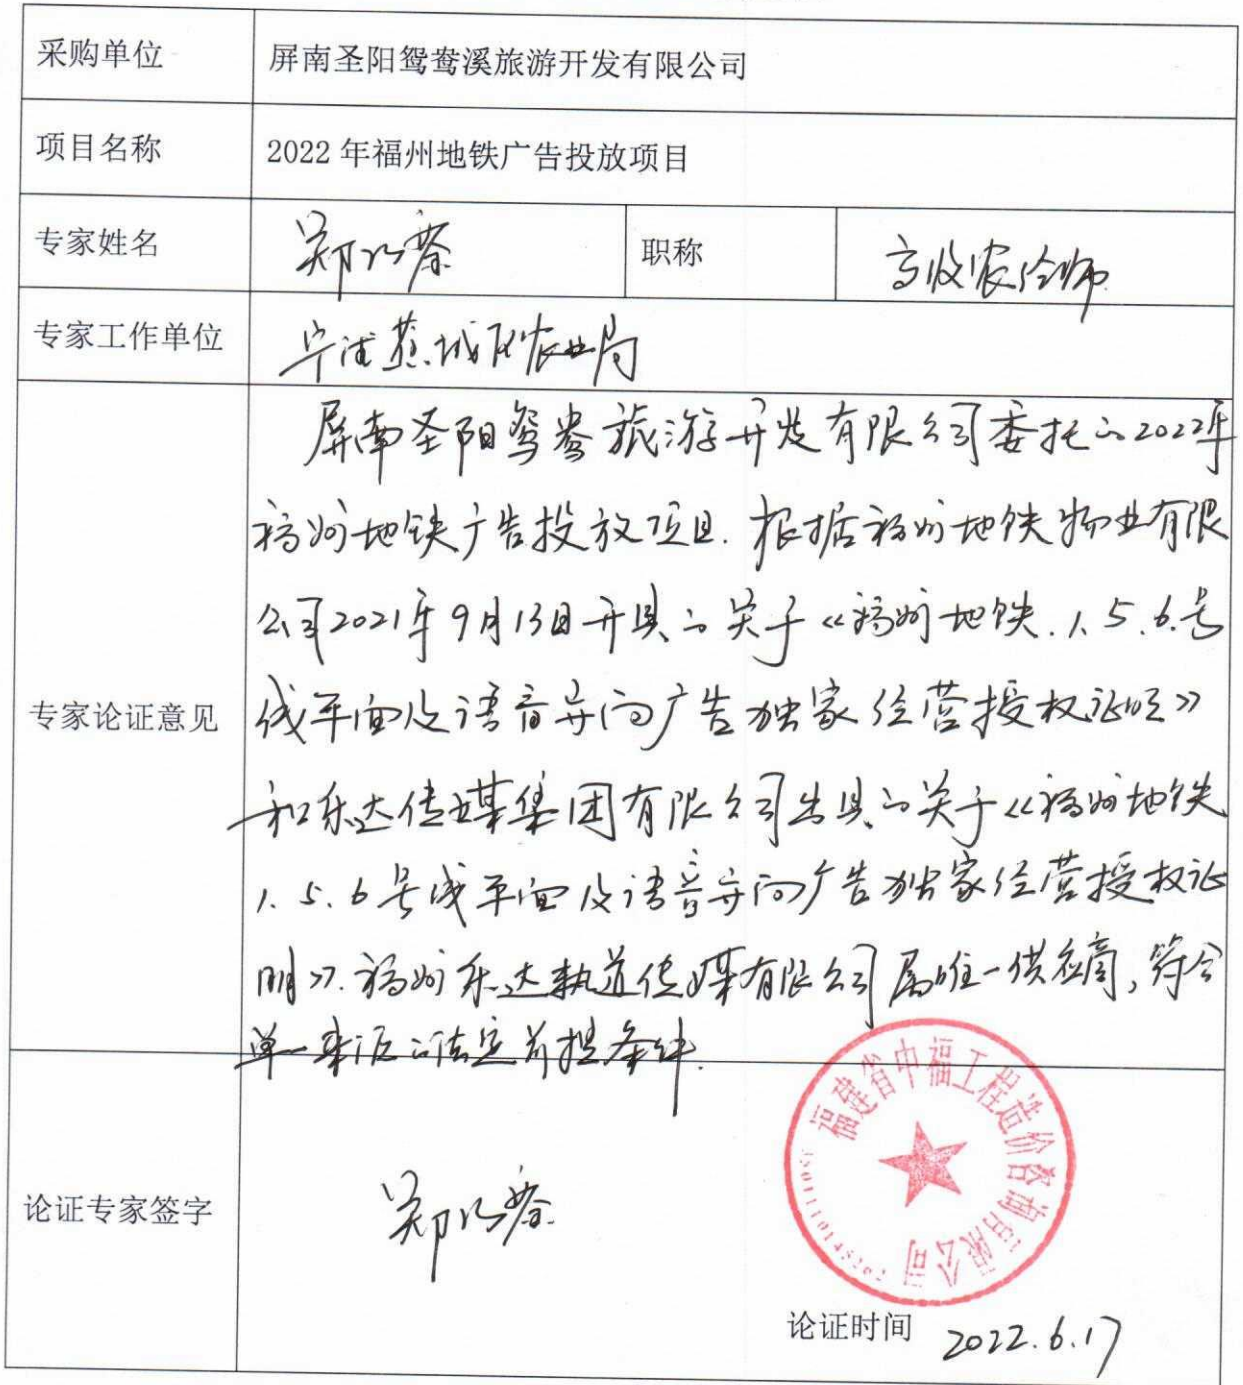 采购单位
屏南圣阳鸳鸯溪旅游开发有限公司
项目名称
2022年福州地铁广告投放项目
专家姓名
郑
职称
高级农经师
专家工作单位
宁德蕉城区农业局
专家论证意见
屏南圣阳鸳鸯旅游开发有限公司委托的2022年
福州地铁广告投放项目.根据福州地铁物业有限
公司2021年9月13日开具的关于《福州地铁.1.5.6.号
线平面及语音导向广告独家经营授权证明》
和乐达传媒集团有限公司出具的关于《福州地铁
1.5.6号线平面及语音导向广告独家经营授权证
明》.福州乐达轨道传媒有限公司属唯一供应商,符合
单一来源的法定前提条件.
论证专家签字
郑
福建省中福工程造价咨询有限公司
论证时间 2022.6.17